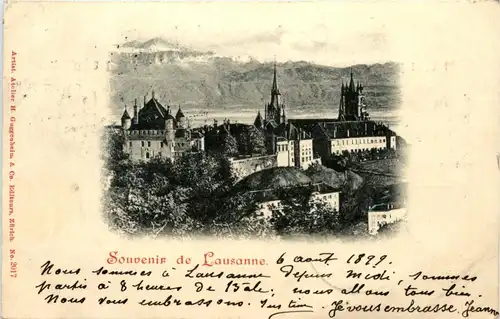 Artist. Atelier H. Guggenheim & Co. Editeurs, Zürich. No. 2017
Souvenir de Lausanne. 6 août 1899.
Nous sommes à Lausanne depuis midi, sommes
partis à 8 heures de Bâle. nous allons tous bien.
Nous vous embrassons. Justin. Je vous embrasse. Jeanne